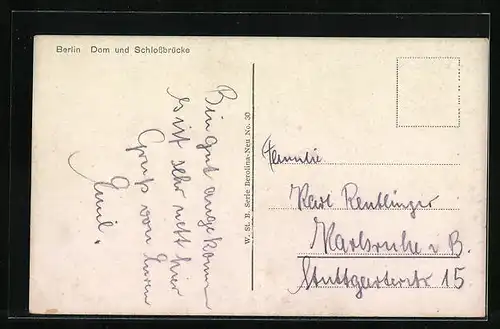 Berlin Dom und Schloßbrücke
Bin gut angekomm
es ist sehr nett hier
Gruß von Euren
Emil.
W. St. B. Serie Berolina-Neu No. 30
Familie
Karl Rentlinger
Karlsruhe i. B.
Stuttgarterstr 15